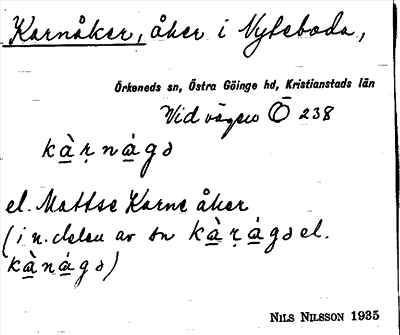 Karnåker, åker i Nyteboda,
Örkeneds sn, Östra Göinge hd, Kristianstads län
Vid vägen Ö 238
kà̱ṛná̱gə
el. Mattse Karne åker
(i n. delen av sn kà̱ṛá̱gə el.
kà̱ná̱gə)
NILS NILSSON 1935